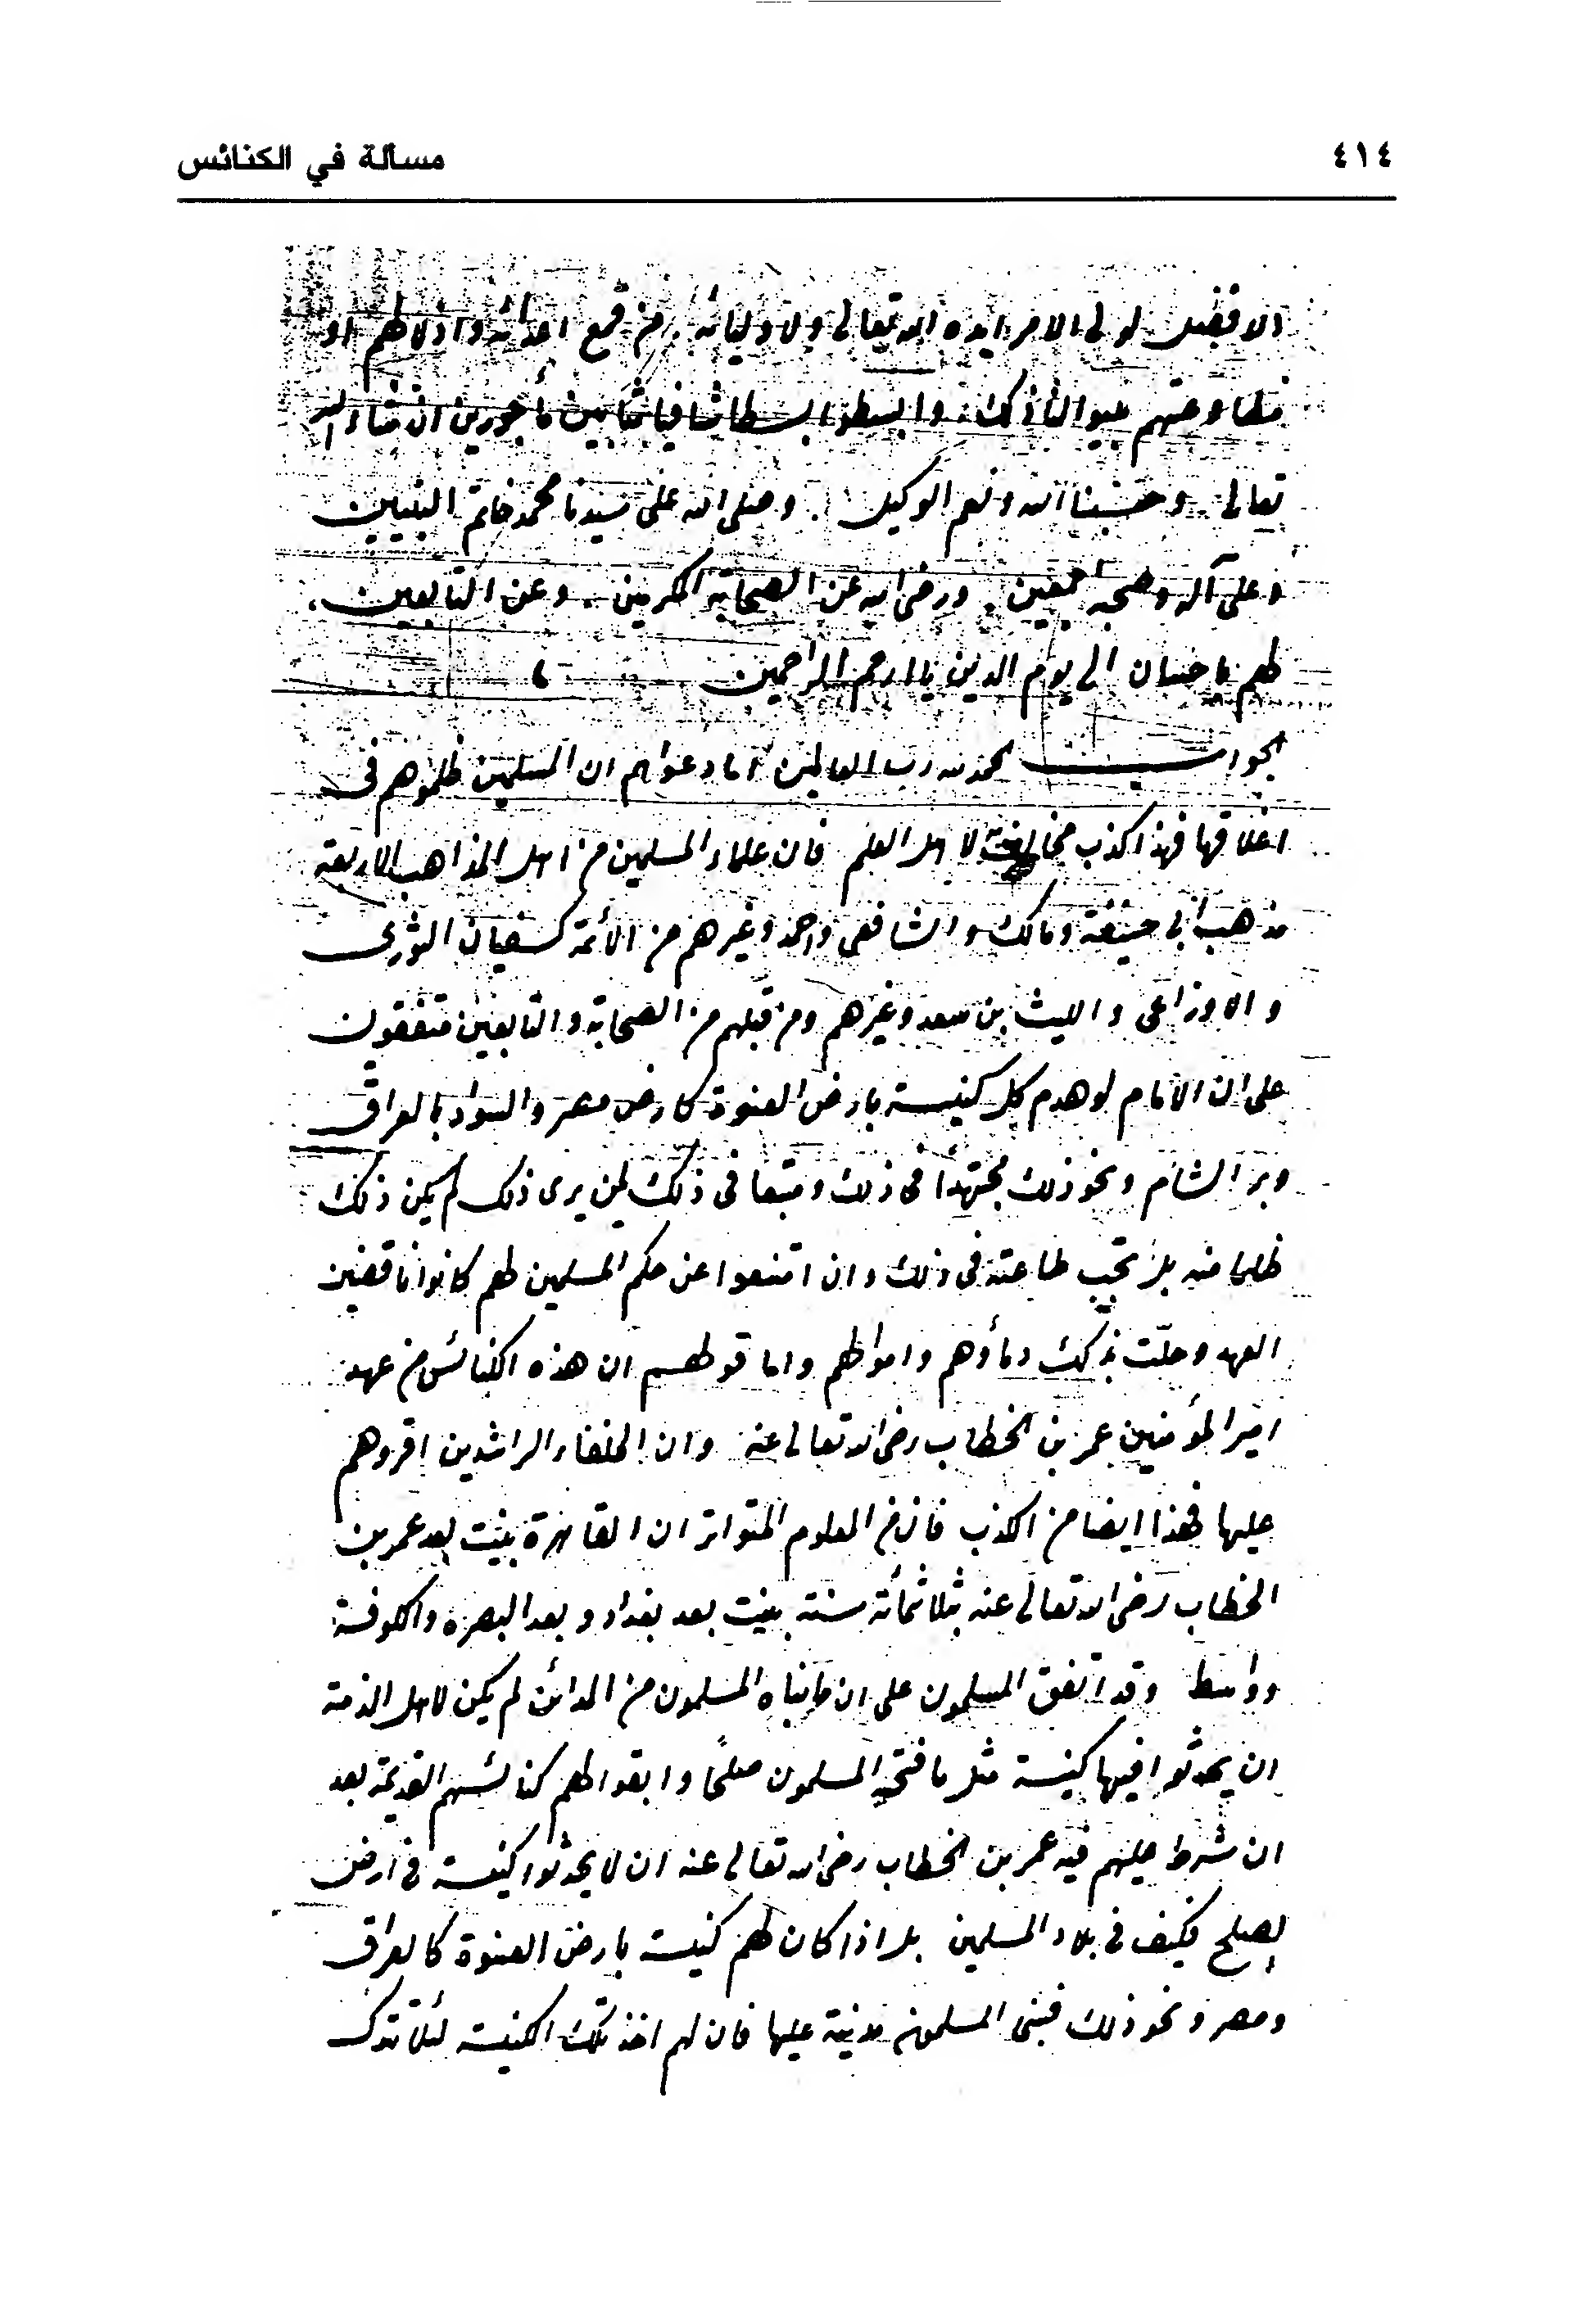 ٤١٤
مسألة في الكنائس
الافضل لولي الامر ايده الله تعالى ولاوليائه . من قمع اعدائه واذلالهم او
مطاوعتهم بينوا لنا ذلك . وابسطوا بسطا شافيا مثابين مأجورين ان شاء الله
تعالى . وحسبنا الله ونعم الوكيل . وصلى الله على سيدنا محمد خاتم النبيين
وعلى آله وصحبه اجمعين . ورضى الله عن الصحابة المكرمين . وعن التابعين .
لهم باحسان الى يوم الدين يا ارحم الراحمين
الجواب الحمد لله رب العالمين اما دعواهم ان المسلمين ظلموهم في
اغلاقها فهذا كذب مخالف لاهل العلم فان علماء المسلمين من اهل المذاهب الاربعة
مذهب أبى حنيفة ومالك والشافعى واحمد وغيرهم من الأئمة كسفيان الثورى
والاوزاعى والليث بن سعد وغيرهم ومن قبلهم من الصحابة والتابعين متفقون
على ان الامام لو هدم كل كنيسة بارض العنوة كارض مصر والسواد بالعراق
وبر الشام ونحو ذلك مجتهدا في ذلك ومتبعا فى ذلك لمن يرى ذلك لم يكن ذلك
ظلما منه بل تجب طاعته فى ذلك وان امتنعوا عن حكم المسلمين لهم كانوا ناقضين
العهد وحلّت بذلك دمأوهم واموالهم واما قولهم ان هذه الكنائس من عهد
امير المؤمنين عمر بن الخطاب رضى الله تعالى عنه وان الخلفاء الراشدين اقروهم
عليها فهذا ايضا من الكذب فان من المعلوم المتواتر ان القاهرة بنيت بعد عمر بن
الخطاب رضى الله تعالى عنه بثلاثمأئة سنة بنيت بعد بغداد وبعد البصرة والكوفة
وواسط وقد اتفق المسلمون على ان ما بناه المسلمون من المدائن لم يكن لاهل الذمة
ان يحدثوا فيها كنيسة مثل ما فتحه المسلمون صلحًا وابقوا لهم كنائسهم القديمة بعد
ان شرط عليهم فيه عمر بن الخطاب رضى الله تعالى عنه ان لا يحدثوا كنيسة في ارض
الصلح فكيف فى بلاد المسلمين بل اذا كان لهم كنيسة بارض العنوة كالعراق
ومصر ونحو ذلك فبنى المسلمون مدينة عليها فان لهم اخذ تلك الكنيسة لئلا تترك